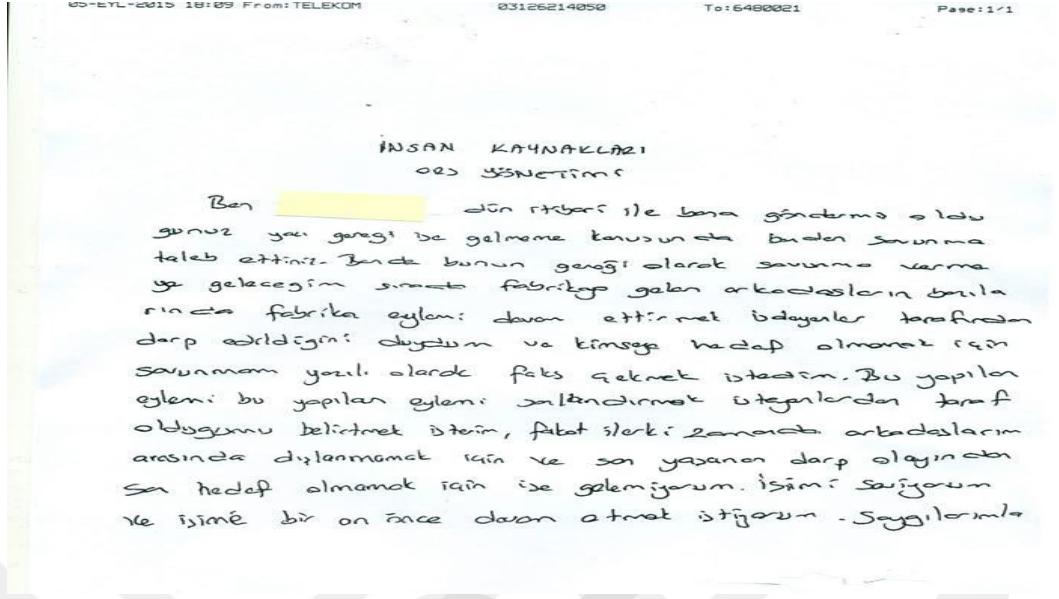 05-EYL-2015 18:09 From:TELEKOM 03126214050 To:6480021 Page:1/1
İNSAN KAYNAKLARI
ORS YÖNETİMİ
Ben dün itibari ile bana göndermiş oldu
gunuz yazı gereği işe gelmeme konusunda benden savunma
taleb ettiniz. Bende bunun gereği olarak savunma verme
ye geleceğim sırada fabrikaya gelen arkadaşların bazıla
rında fabrika eylemi devam ettirmek isdeyenler tarafından
darp edildiğini duydum ve kimseye hedef olmamak için
savunmam yazılı olarak faks çekmek istedim. Bu yapılan
eylemi bu yapılan eylemi sonlandırmak isteyenlerden taraf
olduğumu belirtmek isterim, fakat ilerki zamanda arkadaşlarım
arasında dışlanmamak için ve son yaşanan darp olayından
son hedef olmamak için işe gelemiyorum. İşimi seviyorum
ve işime bir an önce devam etmek istiyorum. Saygılarımla